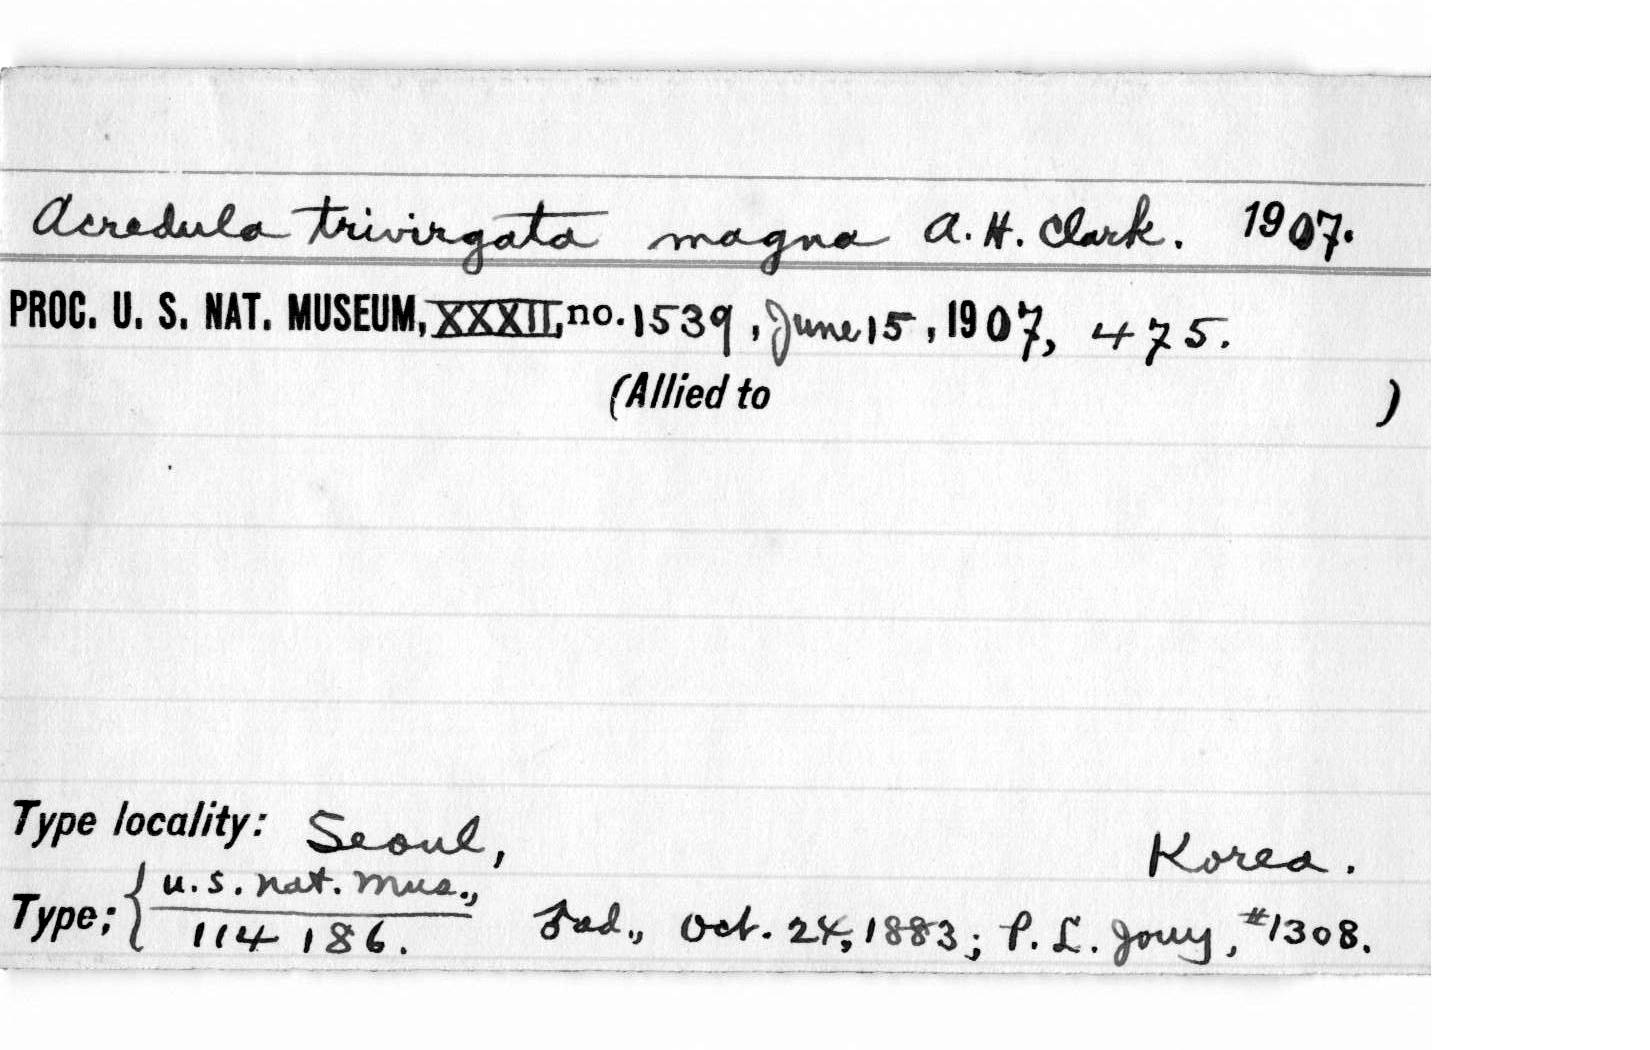 Acredula trivirgata magna A. H. Clark. 1907.
PROC. U. S. NAT. MUSEUM, XXXII, no. 1539, June 15, 1907, 475.
(Allied to )
Type locality: Seoul, Korea.
Type; { U. S. Nat. Mus., 114186. ad., Oct. 24, 1883; P. L. Jouy, #1308.